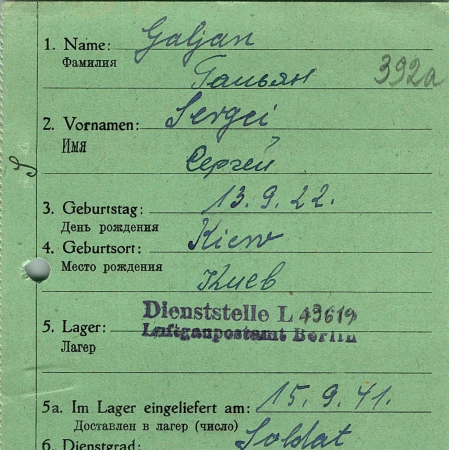 1. Name: Galjan
Фамилия
Гальян
392a
2. Vornamen: Sergei
Имя
Сергей
3. Geburtstag: 13.9.22.
День рождения
4. Geburtsort: Kiew
Место рождения
Киев
Dienststelle L 49619
5. Lager: Luftgaupostamt Berlin
Лагер
5a. Im Lager eingeliefert am: 15.9.41.
Доставлен в лагер (число)
6. Dienstgrad: Soldat